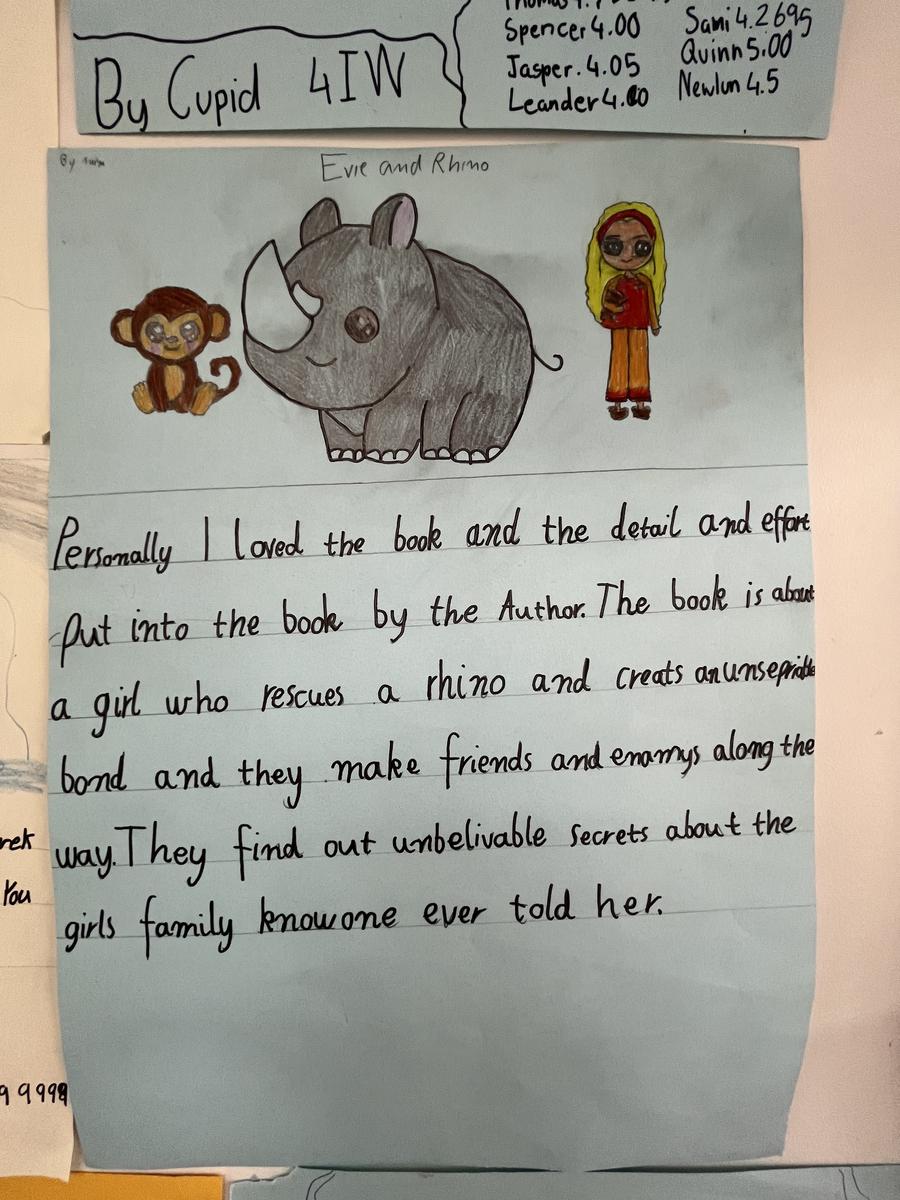 Spencer 4.00
Sami 4.2695
Jasper. 4.05
Quinn 5.00
Leander 4.00
Newlun 4.5
By Cupid 4IW
By
Evie and Rhino
Personally I loved the book and the detail and effort
put into the book by the Author. The book is about
a girl who rescues a rhino and creats an unsepriable
bond and they make friends and enamys along the
way. They find out unbelivable secrets about the
girls family knowone ever told her.
rek
You
9 9999